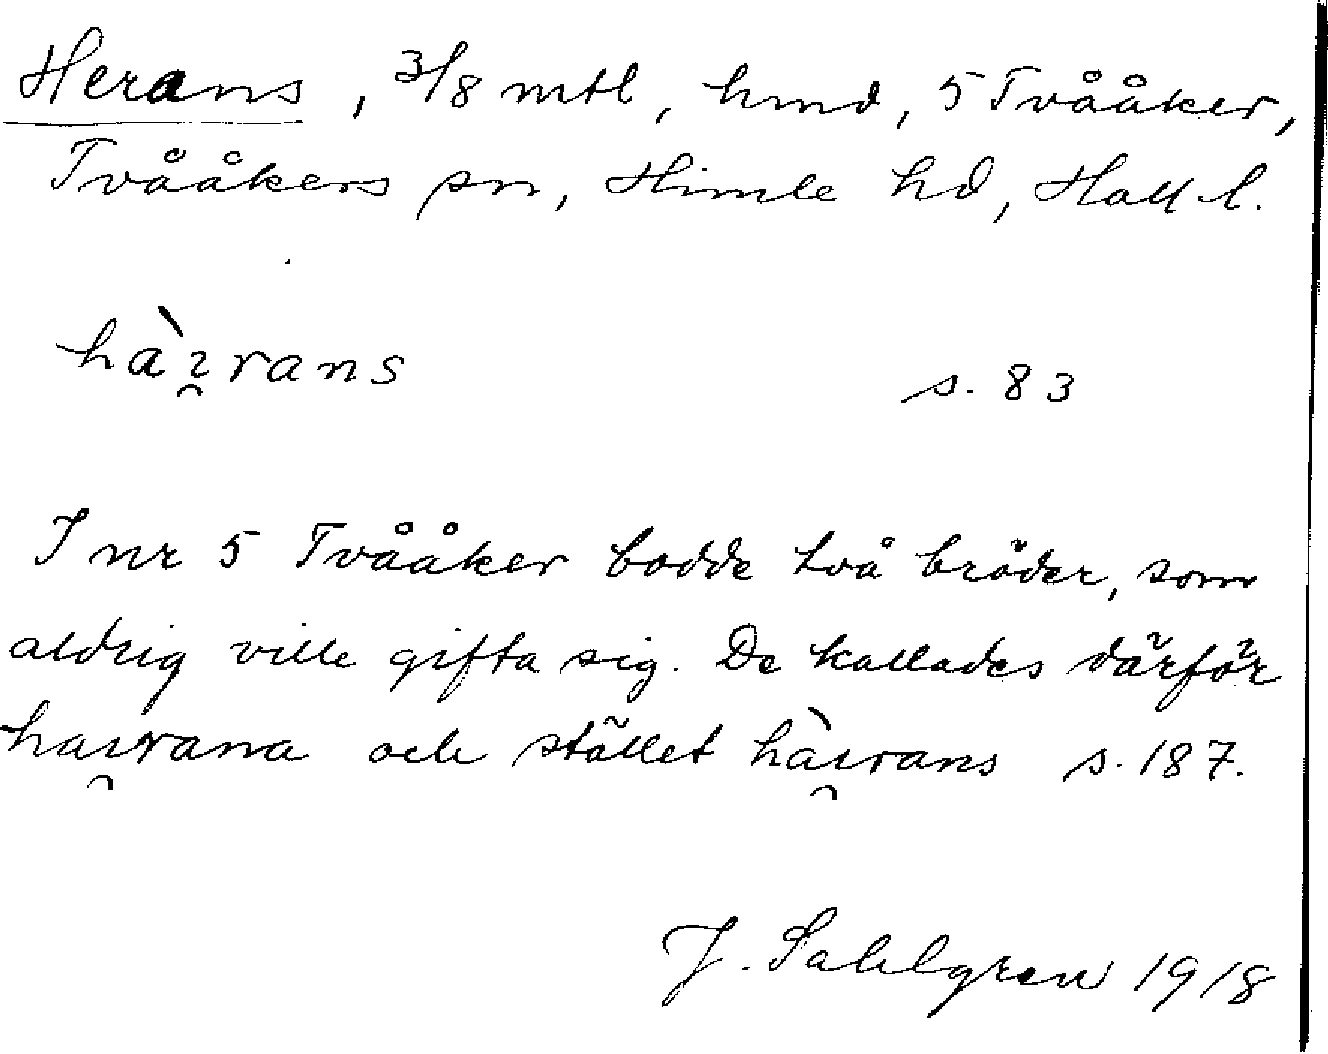 Herans, 3/8 mtl, hmd, 5 Tvååker,
Tvååkers sn, Himle hd, Hall. l.
hàı̯rans
s. 83
I nr 5 Tvååker bodde två bröder, som
aldrig ville gifta sig. De kallades därför
haı̯rana och stället hàı̯rans s. 187.
J. Sahlgren 1918